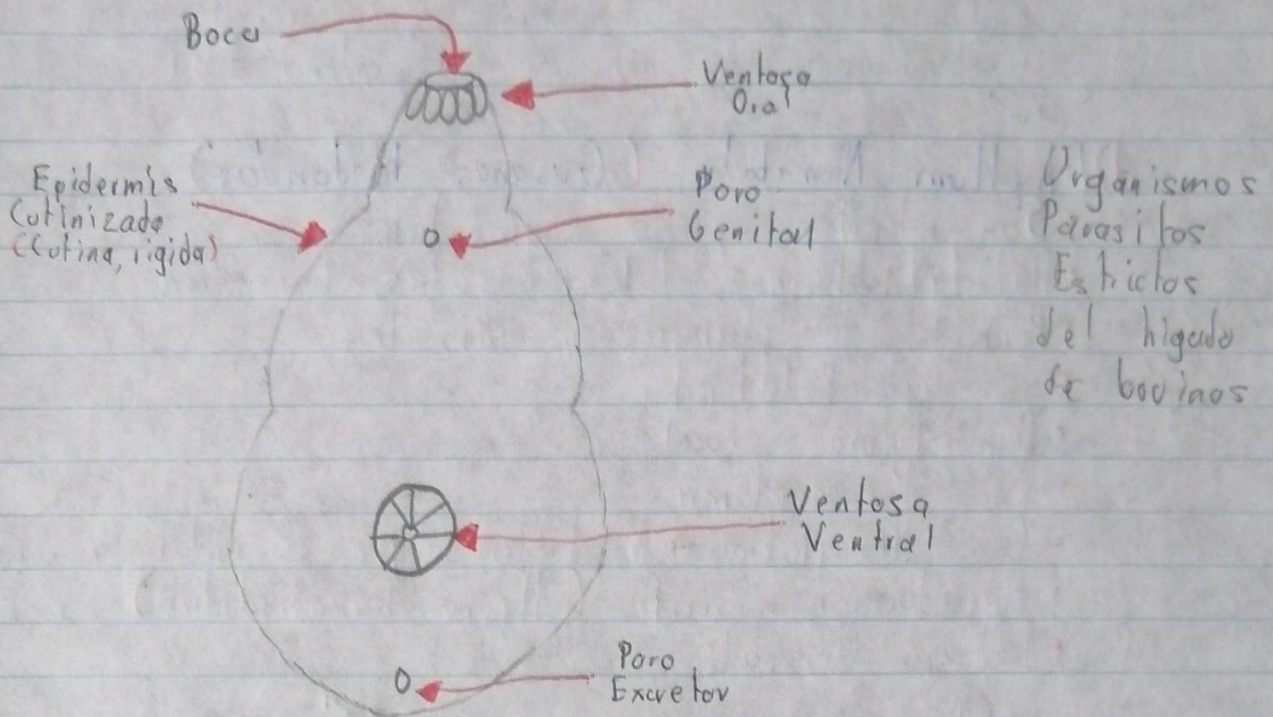 Boca
Ventosa
Oral
Epidermis
Cutinizada
(Cutina, rigida)
Poro
Genital
Organismos
Parasitos
Estrictos
del higado
de bovinos
Ventosa
Ventral
Poro
Excretor